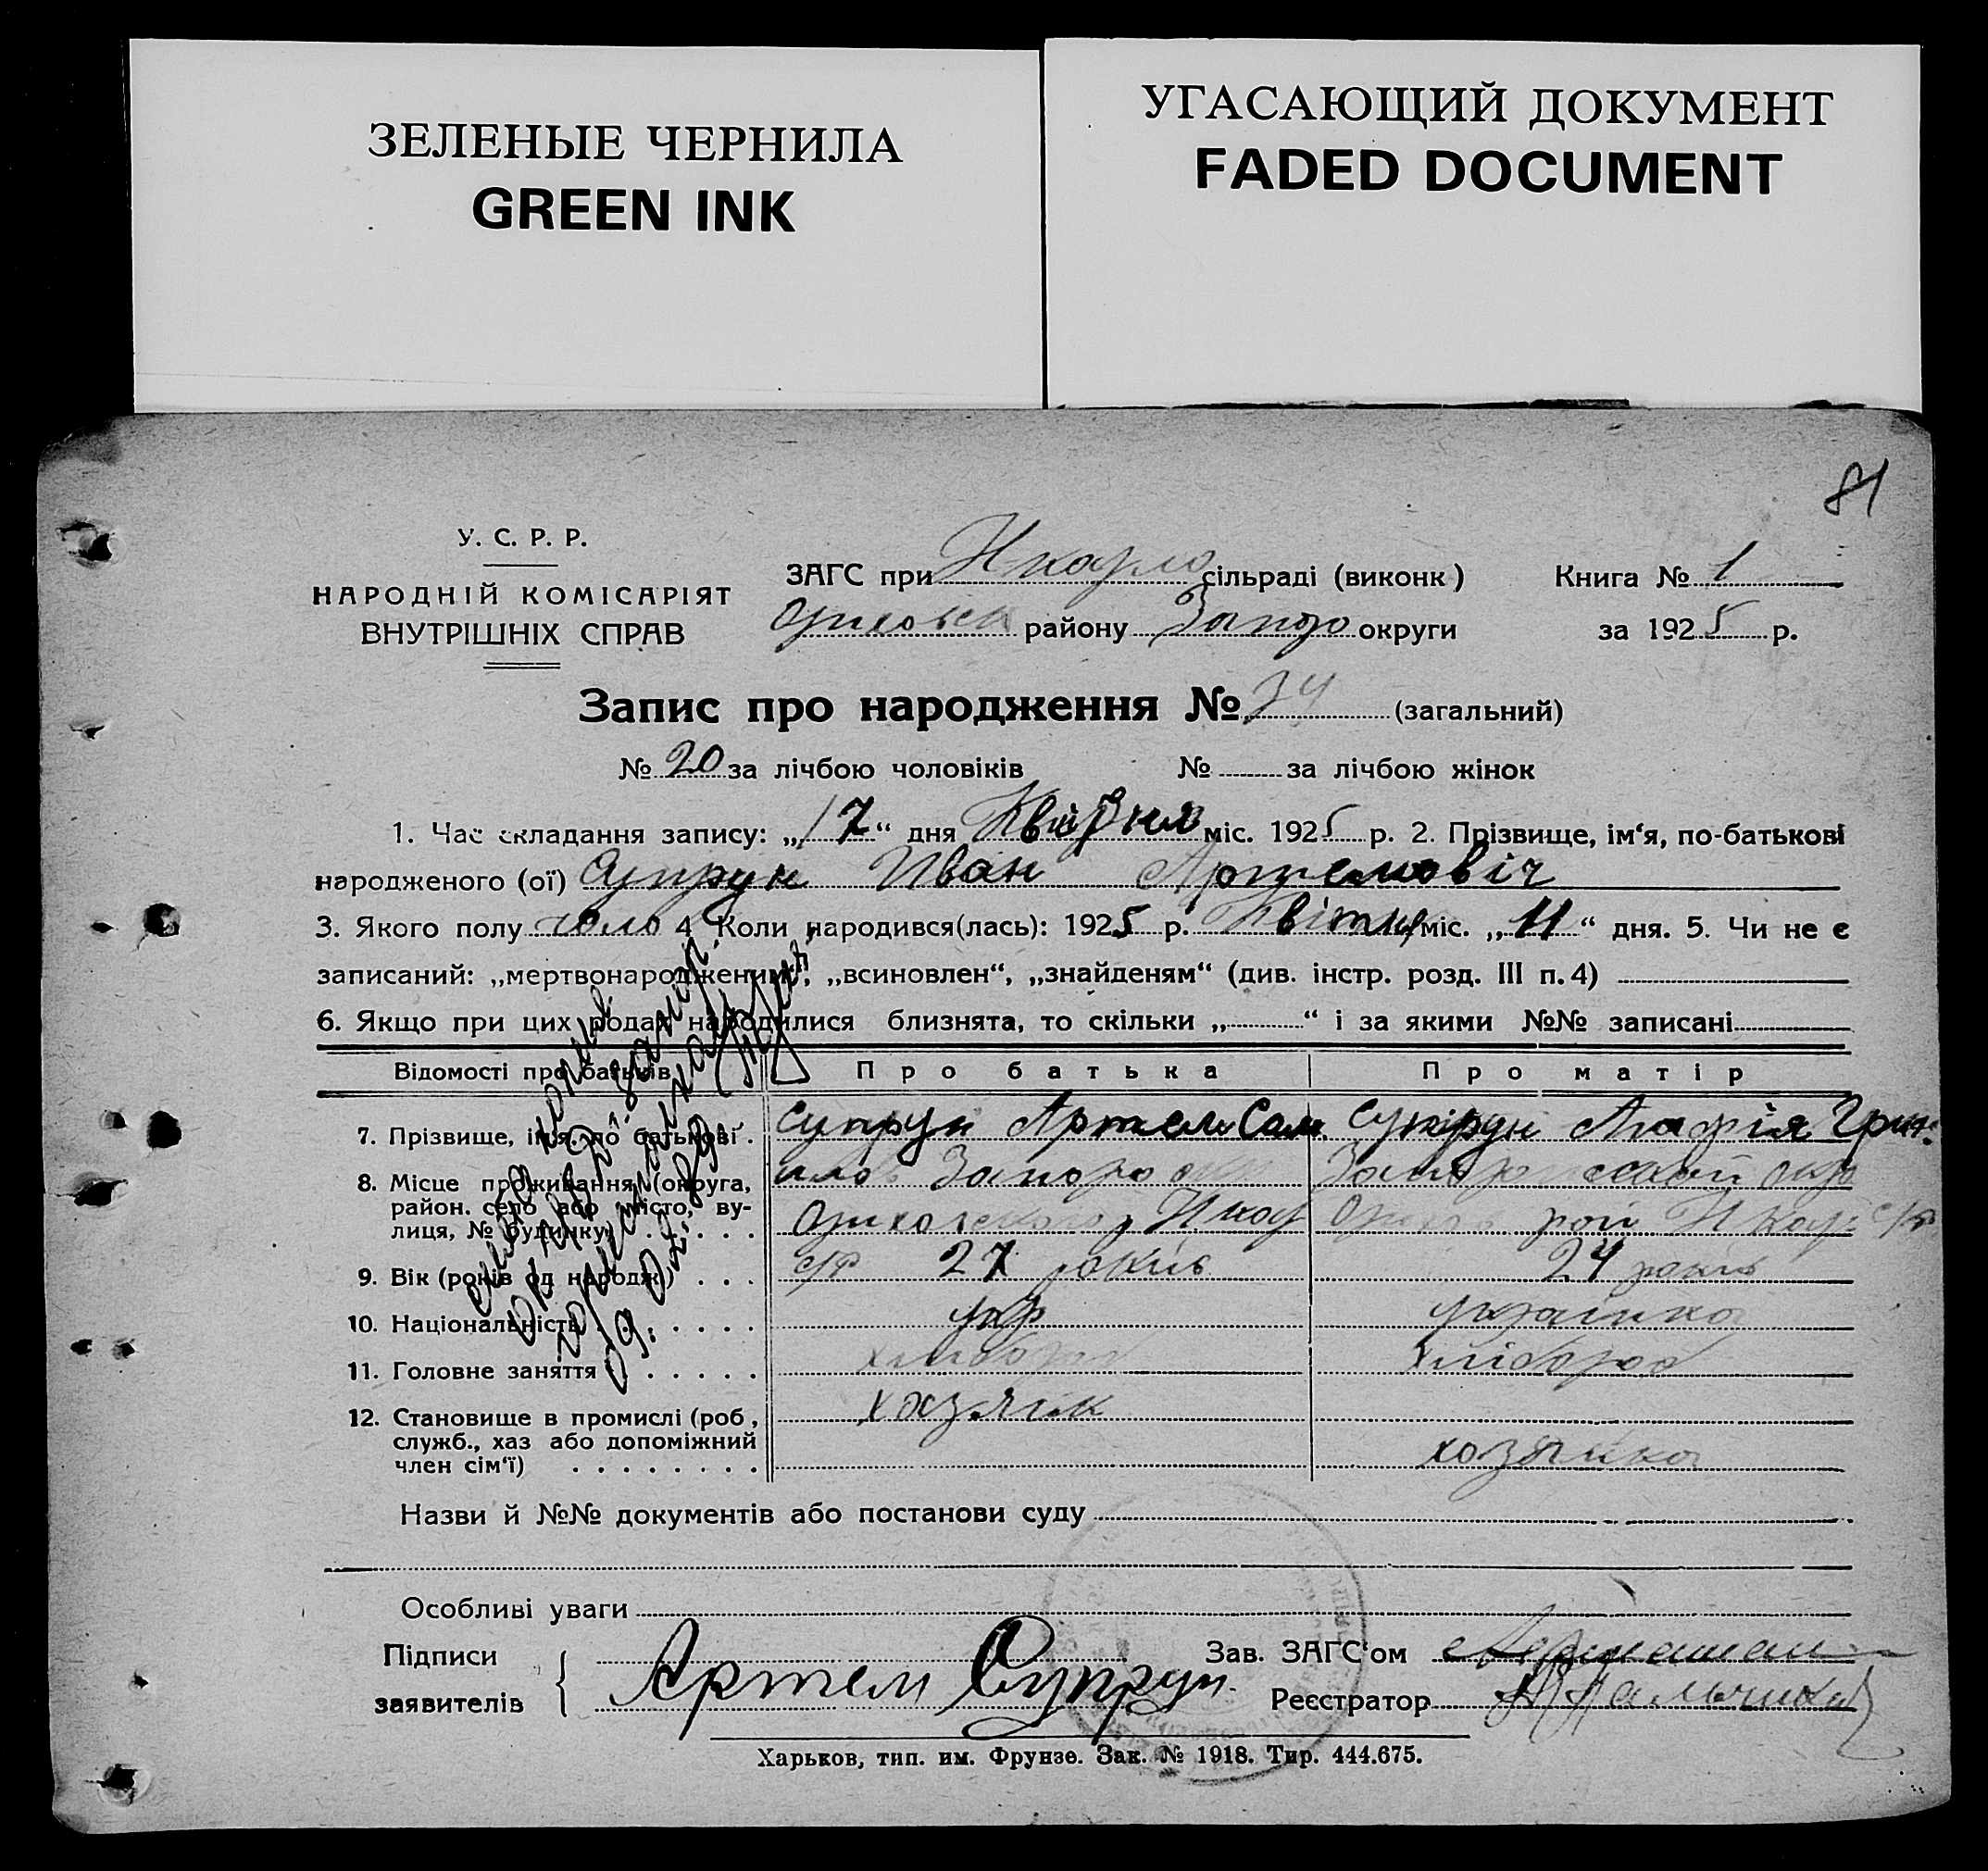 ЗЕЛЕНЫЕ ЧЕРНИЛА
GREEN INK
УГАСАЮЩИЙ ДОКУМЕНТ
FADED DOCUMENT
81
У. С. Р. Р.
НАРОДНІЙ КОМІСАРІЯТ
ВНУТРІШНІХ СПРАВ
ЗАГС при сільраді (виконк) Книга № 1
району округи за 1925 р.
Запис про народження № 34 (загальний)
№ 20 за лічбою чоловіків № за лічбою жінок
1. Час складання запису: „17“ дня Квітня міс. 1925 р. 2. Прізвище, ім‘я, по-батькові
народженого (ої) Супрун Иван Артемовіч
3. Якого полу чоло 4 Коли народився(лась): 1925 р. Квітня міс. „11“ дня. 5. Чи не є
записаний: „мертвонародженим“, „всиновлен“, „знайденям“ (див. інстр. розд. III п. 4)
6. Якщо при цих родах народилися близнята, то скільки „ “ і за якими №№ записані
Відомості про батьків Про батька Про матір
7. Прізвище, імя, по батькові . Супрун Артем Сам Супрун Марія Григ.
8. Місце проживання (округа,
район. село або місто, ву-
лиця, № будинку)
9. Вік (років од народж.) . . . 27 років 24 років
10. Національність укр українка
11. Головне заняття хлібороб хлібороб
12. Становище в промислі (роб, хазяїн
служб., хаз або допоміжний
член сім‘ї) хозяйка
Назви й №№ документів або постанови суду
Особливі уваги
Підписи
заявителів
Артем Супрун
Зав. ЗАГС‘ом
Реєстратор
Харьков, тип. им. Фрунзе. Зак. № 1918. Тир. 444.675.